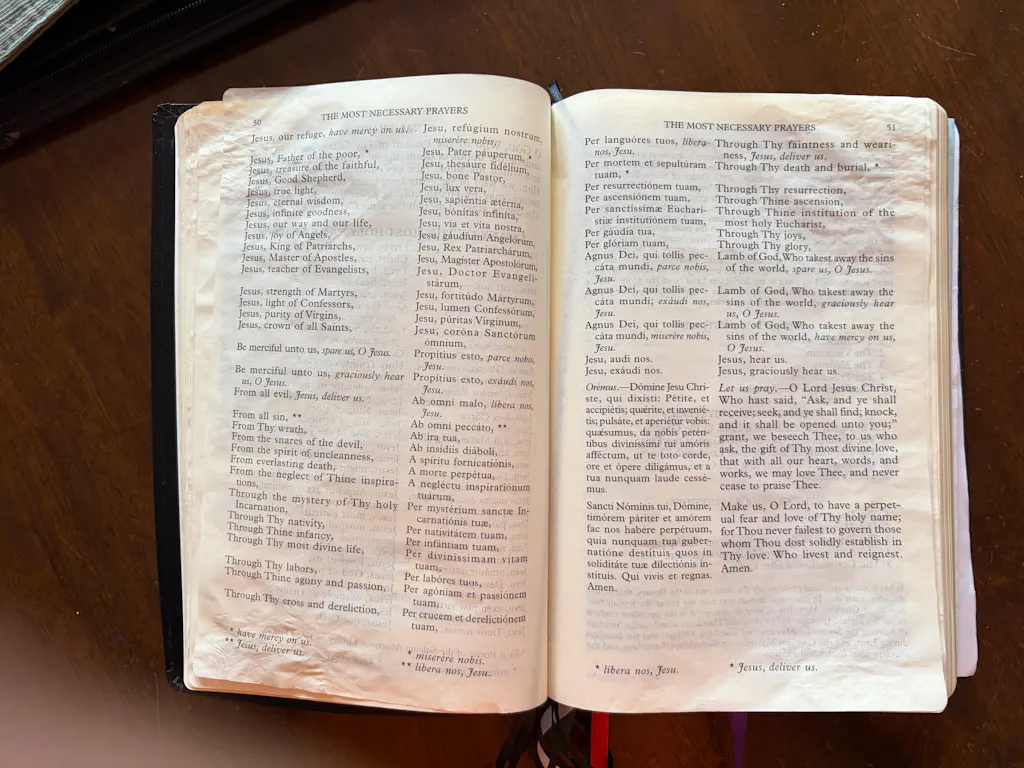 50
THE MOST NECESSARY PRAYERS
Jesus, our refuge, have mercy on us.
Jesus, Father of the poor, *
Jesus, treasure of the faithful,
Jesus, Good Shepherd,
Jesus, true light,
Jesus, eternal wisdom,
Jesus, infinite goodness,
Jesus, our way and our life,
Jesus, joy of Angels,
Jesus, King of Patriarchs,
Jesus, Master of Apostles,
Jesus, teacher of Evangelists,
Jesus, strength of Martyrs,
Jesus, light of Confessors,
Jesus, purity of Virgins,
Jesus, crown of all Saints,
Be merciful unto us, spare us, O Jesus.
Be merciful unto us, graciously hear
us, O Jesus.
From all evil, Jesus, deliver us.
From all sin, **
From Thy wrath,
From the snares of the devil,
From the spirit of uncleanness,
From everlasting death,
From the neglect of Thine inspira-
tions,
Through the mystery of Thy holy
Incarnation,
Through Thy nativity,
Through Thine infancy,
Through Thy most divine life,
Through Thy labors,
Through Thine agony and passion,
Through Thy cross and dereliction,
* have mercy on us.
** Jesus, deliver us.
Jesu, refúgium nostrum,
miserére nobis,
Jesu, Pater páuperum, *
Jesu, thesáure fidélium,
Jesu, bone Pastor,
Jesu, lux vera,
Jesu, sapiéntia ætérna,
Jesu, bónitas infiníta,
Jesu, via et vita nostra,
Jesu, gáudium Angelórum,
Jesu, Rex Patriarchárum,
Jesu, Magíster Apostolórum,
Jesu, Doctor Evangeli-
stárum,
Jesu, fortitúdo Mártyrum,
Jesu, lumen Confessórum,
Jesu, púritas Vírginum,
Jesu, coróna Sanctórum
ómnium,
Propítius esto, parce nobis,
Jesu.
Propítius esto, exáudi nos,
Jesu.
Ab omni malo, líbera nos,
Jesu.
Ab omni peccáto, **
Ab ira tua,
Ab insídiis diáboli,
A spíritu fornicatiónis,
A morte perpétua,
A negléctu inspiratiónum
tuárum,
Per mystérium sanctæ In-
carnatiónis tuæ,
Per nativitátem tuam,
Per infántiam tuam,
Per diviníssimam vitam
tuam,
Per labóres tuos,
Per agóniam et passiónem
tuam,
Per crucem et derelictiónem
tuam,
* miserére nobis.
** líbera nos, Jesu.
THE MOST NECESSARY PRAYERS
51
Per languóres tuos, líbera
nos, Jesu.
Per mortem et sepultúram
tuam, *
Per resurrectiónem tuam,
Per ascensiónem tuam,
Per sanctíssimæ Euchari-
stiæ institutiónem tuam,
Per gáudia tua,
Per glóriam tuam,
Agnus Dei, qui tollis pec-
cáta mundi, parce nobis,
Jesu.
Agnus Dei, qui tollis pec-
cáta mundi; exáudi nos,
Jesu.
Agnus Dei, qui tollis pec-
cáta mundi, miserére nobis,
Jesu.
Jesu, audi nos.
Jesu, exáudi nos.
Orémus.—Dómine Jesu Chri-
ste, qui dixísti: Pétite, et
accipiétis; quǽrite, et invenié-
tis; pulsáte, et aperiétur vobis:
quǽsumus, da nobis peténtibus
tibus diviníssimi tui amóris
afféctum, ut te toto corde,
ore et ópere diligámus, et a
tua nunquam laude cessé-
mus.
Sancti Nóminis tui, Dómine,
timórem páriter et amórem
fac nos habére perpétuum,
quia nunquam tua guber-
natióne destítuis quos in
soliditáte tuæ dilectiónis in-
stítuis. Qui vivis et regnas.
Amen.
* líbera nos, Jesu.
Through Thy faintness and weari-
ness, Jesus, deliver us.
Through Thy death and burial, *
Through Thy resurrection,
Through Thine ascension,
Through Thine institution of the
most holy Eucharist,
Through Thy joys,
Through Thy glory,
Lamb of God, Who takest away the sins
of the world, spare us, O Jesus.
Lamb of God, Who takest away the
sins of the world, graciously hear
us, O Jesus.
Lamb of God, Who takest away the
sins of the world, have mercy on us,
O Jesus.
Jesus, hear us.
Jesus, graciously hear us.
Let us pray.—O Lord Jesus Christ,
Who hast said, “Ask, and ye shall
receive; seek, and ye shall find; knock,
and it shall be opened unto you;”
grant, we beseech Thee, to us who
ask, the gift of Thy most divine love,
that with all our heart, words, and
works, we may love Thee, and never
cease to praise Thee.
Make us, O Lord, to have a perpet-
ual fear and love of Thy holy name;
for Thou never failest to govern those
whom Thou dost solidly establish in
Thy love. Who livest and reignest.
Amen.
* Jesus, deliver us.